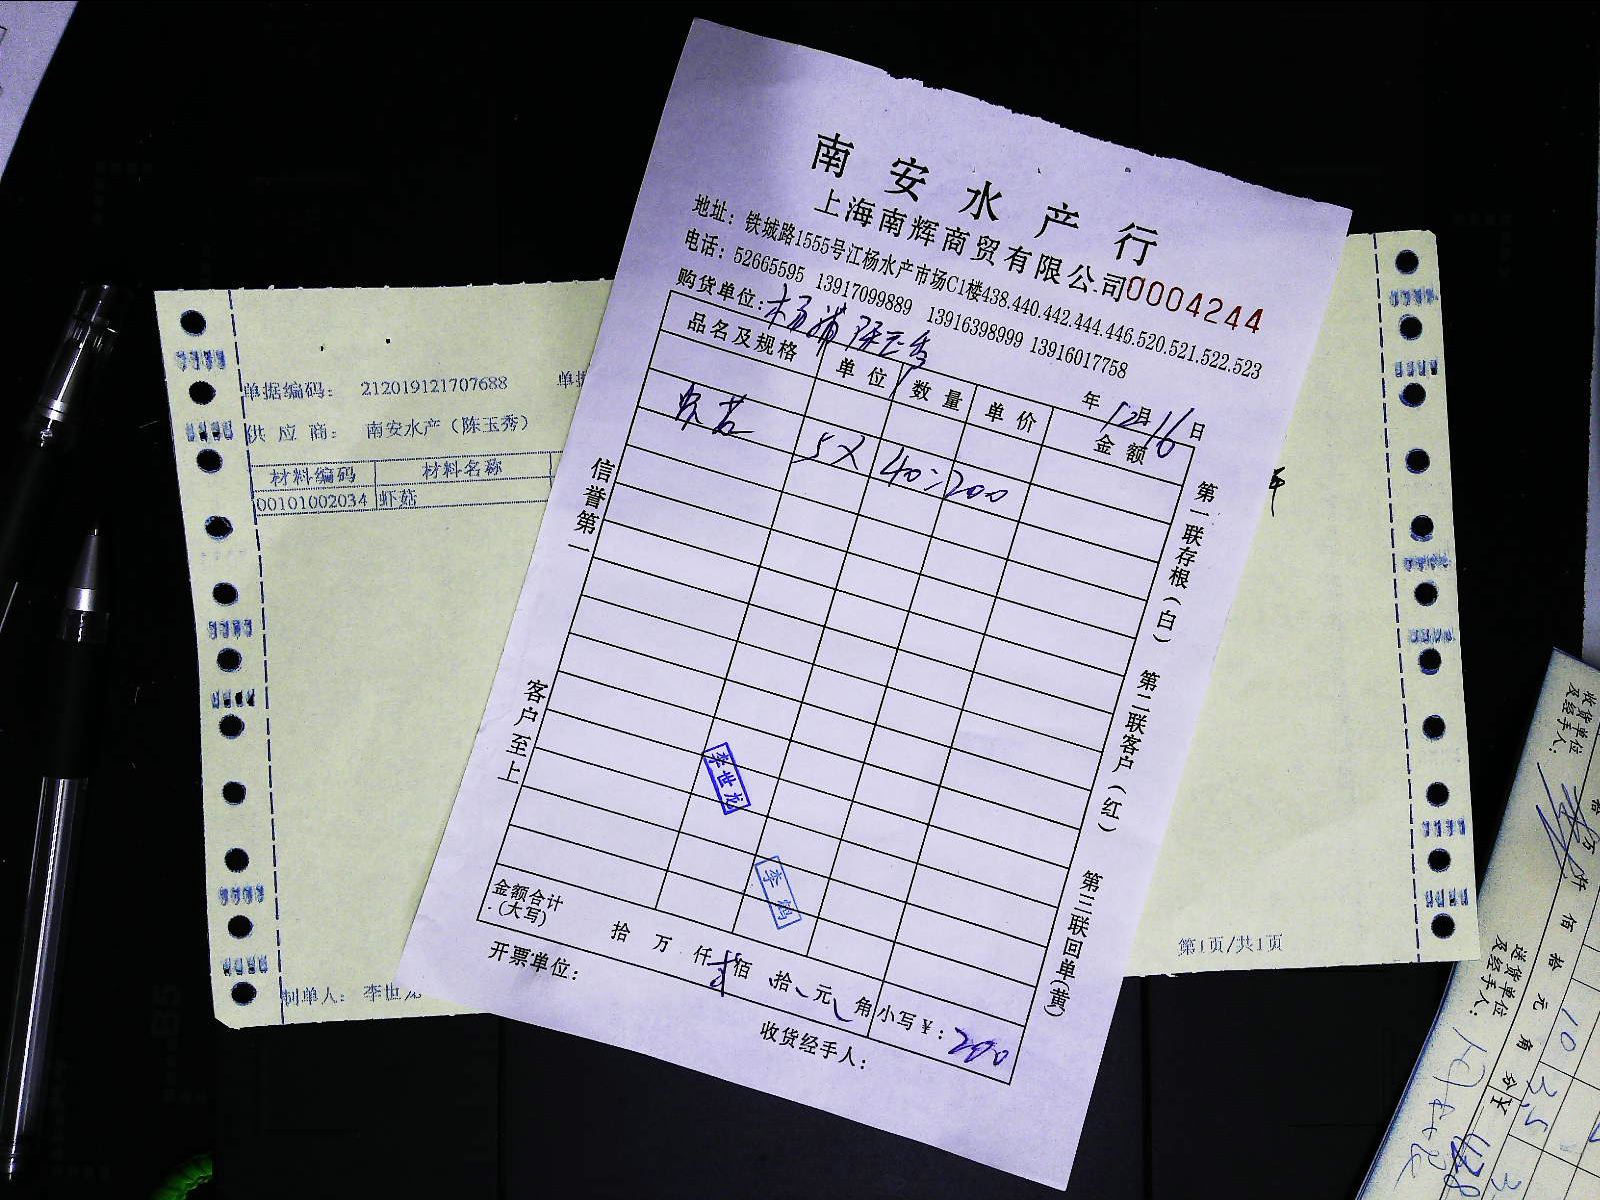 南安水产行
上海南辉商贸有限公司0004244
地址：铁城路1555号江杨水产市场C1楼438.440.442.444.446.520.521.522.523
电话：52665595 13917099889 13916398999 13916017758
购货单位：杨浦 年12月16日
品名及规格 单位 数量 单价 金额
5X 40=200
信誉第一
客户至上
第一联存根（白） 第二联客户（红） 第三联回单（黄）
李世龙
李鸿
金额合计（大写） 拾 万 仟 佰 拾 元 角 小写￥：200
开票单位：
收货经手人：
单据编码： 212019121707688 单据
供应商： 南安水产（陈玉秀）
材料编码 材料名称
00101002034 虾菇
制单人： 李世龙
第1页/共1页
收货单位及经手人：
万 佰 拾 元 角 分
送货单位及经手人：
10
3.5